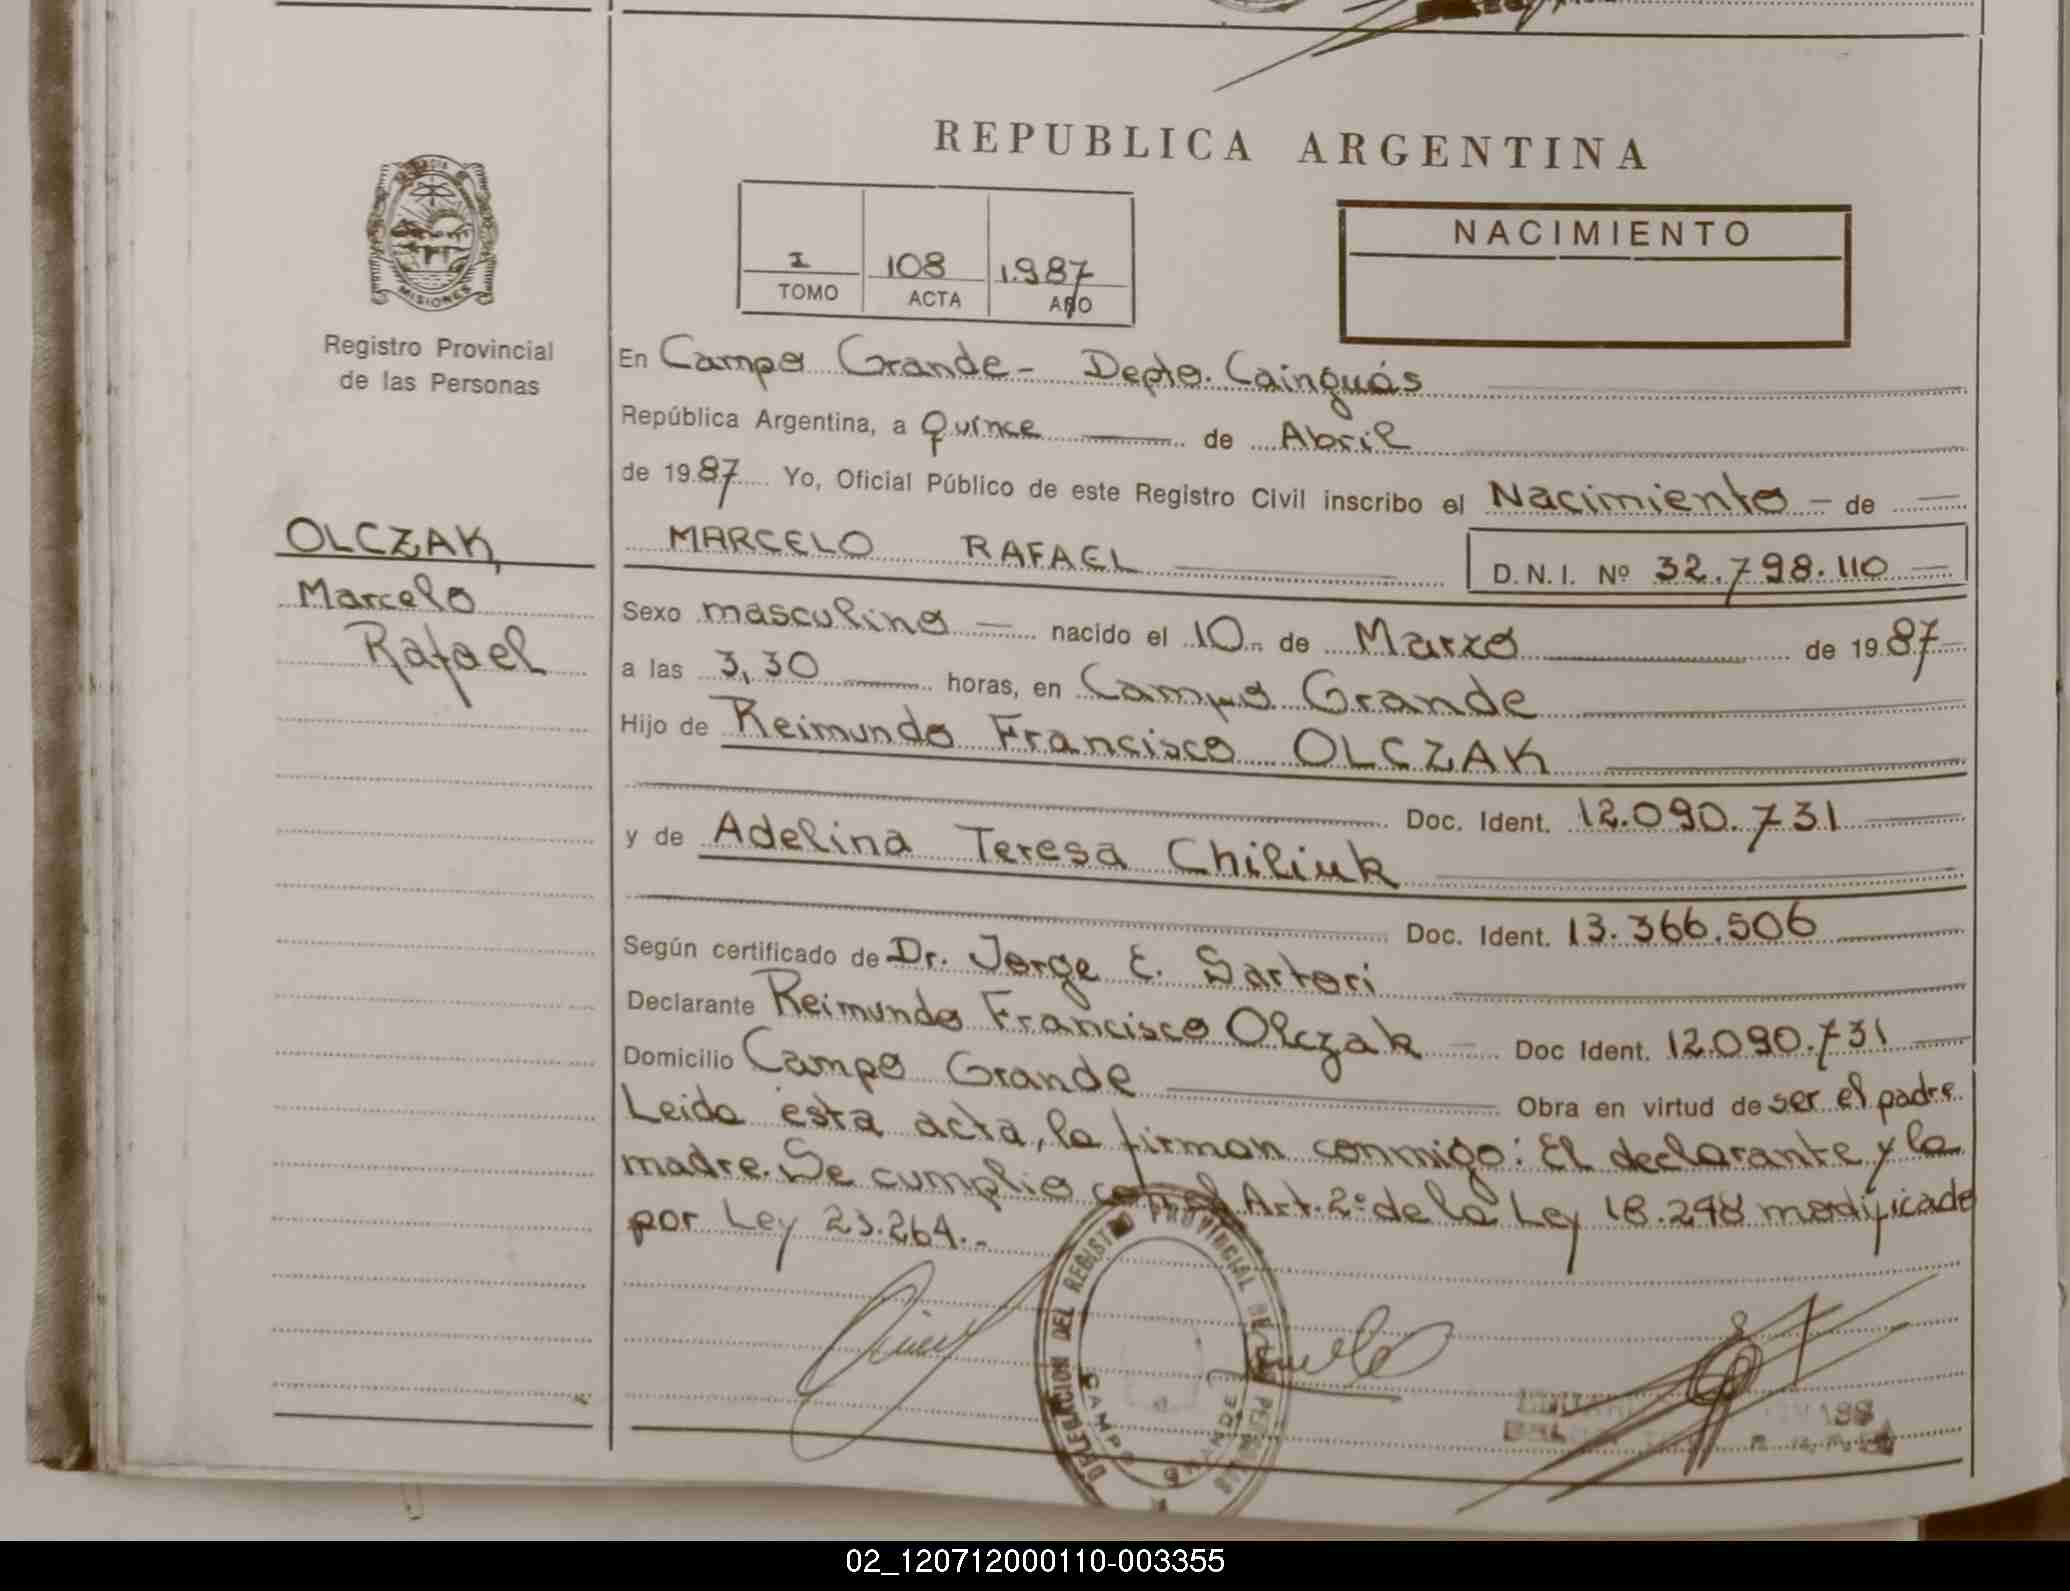 REPUBLICA ARGENTINA
MISIONES
Registro Provincial
de las Personas
I 108 1.987
TOMO ACTA AÑO
NACIMIENTO
En Campo Grande - Depto. Cainguás
República Argentina, a Quince de Abril
de 1987 Yo, Oficial Público de este Registro Civil inscribo el Nacimiento - de
OLCZAK,
Marcelo
Rafael
MARCELO RAFAEL D.N.I. Nº 32.798.110
Sexo masculino nacido el 10 de Marzo de 1987
a las 3,30 horas, en Campo Grande
Hijo de Reimundo Francisco OLCZAK
Doc. Ident. 12.090.731
y de Adelina Teresa Chiliuk
Doc. Ident. 13.366.506
Según certificado de Dr. Jorge E. Sartori
Declarante Reimundo Francisco Olczak Doc Ident. 12.090.731
Domicilio Campo Grande Obra en virtud de ser el padre.
Leida esta acta, la firman conmigo: El declarante y la
madre. Se cumplio con el Art. 2º de la Ley 18.248 modificado
por Ley 23.264.-
DELEGACION DEL REGISTRO PROVINCIAL DE LAS PERSONAS
CAMPO GRANDE
02_120712000110-003355